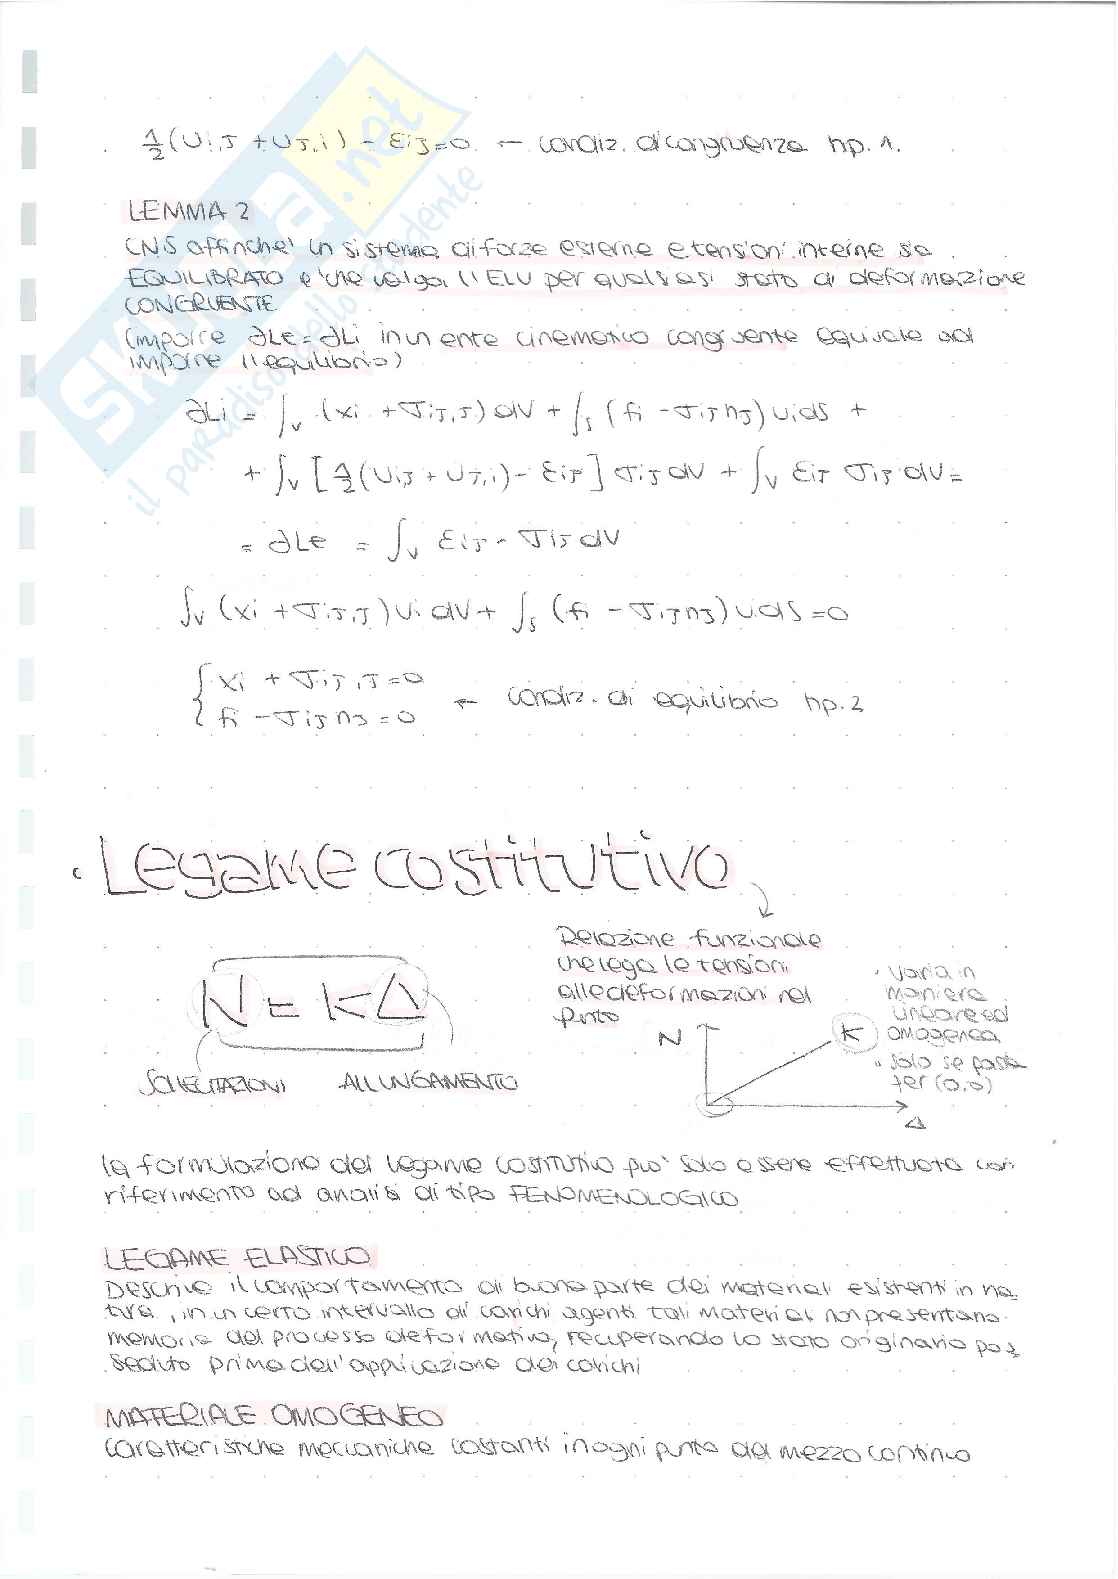 1/2 (Ui,J + UJ,i) - εiJ = 0 ← condiz. di congruenza hp. 1.
LEMMA 2
CNS affinche' un sistema di forze esterne e tensioni interne sia
EQUILIBRATO e' che valga il ELV per qualsiasi stato di deformazione
CONGRUENTE
(imporre ∂Le = ∂Li in un ente cinematico congruente equivale ad
imporre l'equilibrio)
∂Li = ∫v (xi + σiJ,J) dV + ∫s (fi - σiJ nJ) ui dS +
+ ∫v [1/2 (UiJ + UJ,i) - εiJ] σiJ dV + ∫v εiJ σiJ dV =
= ∂Le = ∫v εiJ - σiJ dV
∫v (xi + σiJ,J) ui dV + ∫s (fi - σiJ nJ) ui dS = 0
{ xi + σiJ,J = 0
fi - σiJ nJ = 0 ← condiz. di equilibrio hp. 2
Legame costitutivo
Relazione funzionale
che lega le tensioni
alle deformazioni nel
punto
N = KΔ
SOLLECITAZIONI ALLUNGAMENTO
N
K
Δ
· varia in
maniera
lineare ed
omogenea
· solo se passa
per (0,0)
la formulazione del legame costitutivo puo' solo essere effettuata con
riferimento ad analisi di tipo FENOMENOLOGICO
LEGAME ELASTICO
Descrive il comportamento di buona parte dei materiali esistenti in na-
tura, in un certo intervallo di carichi agenti tali materiali non presentano
memoria del processo deformativo, recuperando lo stato originario pos
seduto prima dell'applicazione dei carichi
MATERIALE OMOGENEO
caratteristiche meccaniche costanti in ogni punto del mezzo continuo
SKUOLA.net
il paradiso dello studente